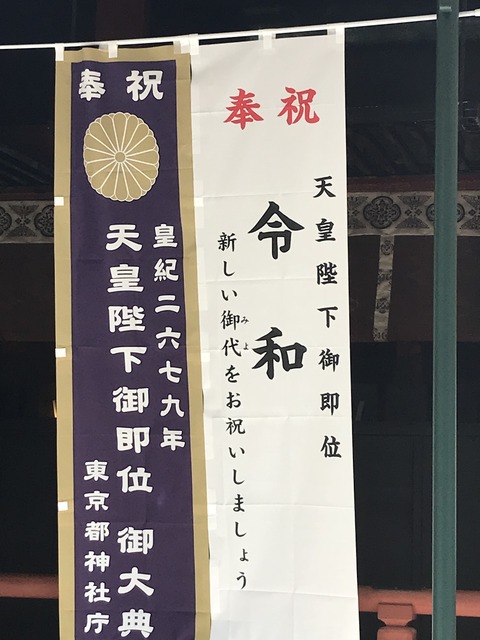 奉祝
天皇陛下御即位
令和
新しい御代をお祝いしましょう
みよ
奉祝
皇紀二六七九年
天皇陛下御即位 御大典
東京都神社庁